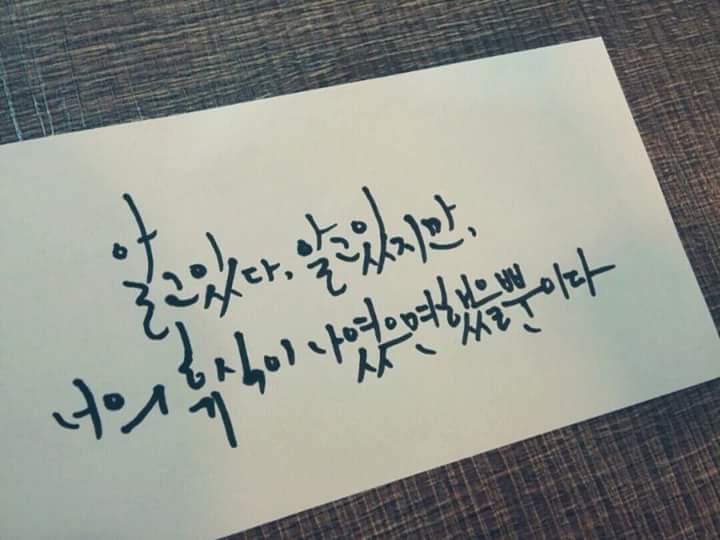 알고있다, 알고있지만,
너의 휴식이 나였으면했을뿐이다